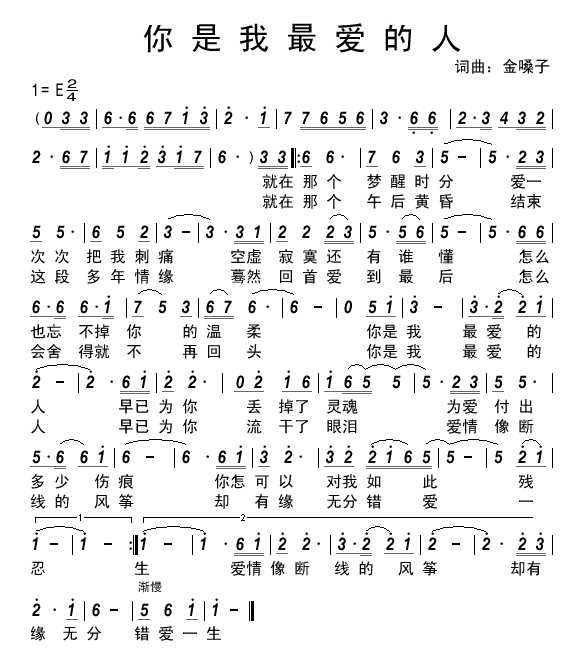 你是我最爱的人
词曲：金嗓子
1= E 2/4
(0 3 3 | 6·6 6 7 1 3 | 2· 1 | 7 7 6 5 6 | 3· 6 6 | 2·3 4 3 2 |
2· 6 7 | 1 1 2 3 1 7 | 6·) 3 3 |: 6 6· | 7 6 3 | 5 – | 5· 2 3 |
就在 那 个 梦 醒 时 分 爱一
就在 那 个 午 后 黄 昏 结束
5 5· | 6 5 2 | 3 – | 3· 3 1 | 2 2 2 3 | 5·5 6 | 5 – | 5· 6 6 |
次 次 把 我 刺 痛 空虚 寂 寞 还 有 谁 懂 怎么
这 段 多 年 情 缘 蓦然 回 首 爱 到 最 后 怎么
6·6 6·1 | 7 5 3 | 6 7 6· | 6 – | 0 5 1 | 3 – | 3·2 2 1 |
也忘 不掉 你 的 温 柔 你是 我 最 爱 的
会舍 得就 不 再 回 头 你是 我 最 爱 的
2 – | 2· 6 1 | 2 2· | 0 2 1 6 | 1 6 5 5 | 5·2 3 | 5 5· |
人 早已 为 你 丢 掉了 灵魂 为爱 付 出
人 早已 为 你 流 干了 眼泪 爱情 像 断
5·6 6 1 | 6 – | 6· 6 1 | 3 2· | 3·2 2 1 6 5 | 5 – | 5 2 1 |
多 少 伤 痕 你怎 可 以 对我 如 此 残
线 的 风 筝 却 有 缘 无分 错 爱 一
1 2
1 – | 1 – :| 1 – | 1· 6 1 | 2 2· | 3·2 2 1 | 2 – | 2· 2 3 |
忍 生 爱情 像 断 线 的 风 筝 却有
渐慢
2· 1 | 6 – | 5 6 1 | 1 – ‖
缘 无 分 错 爱 一 生